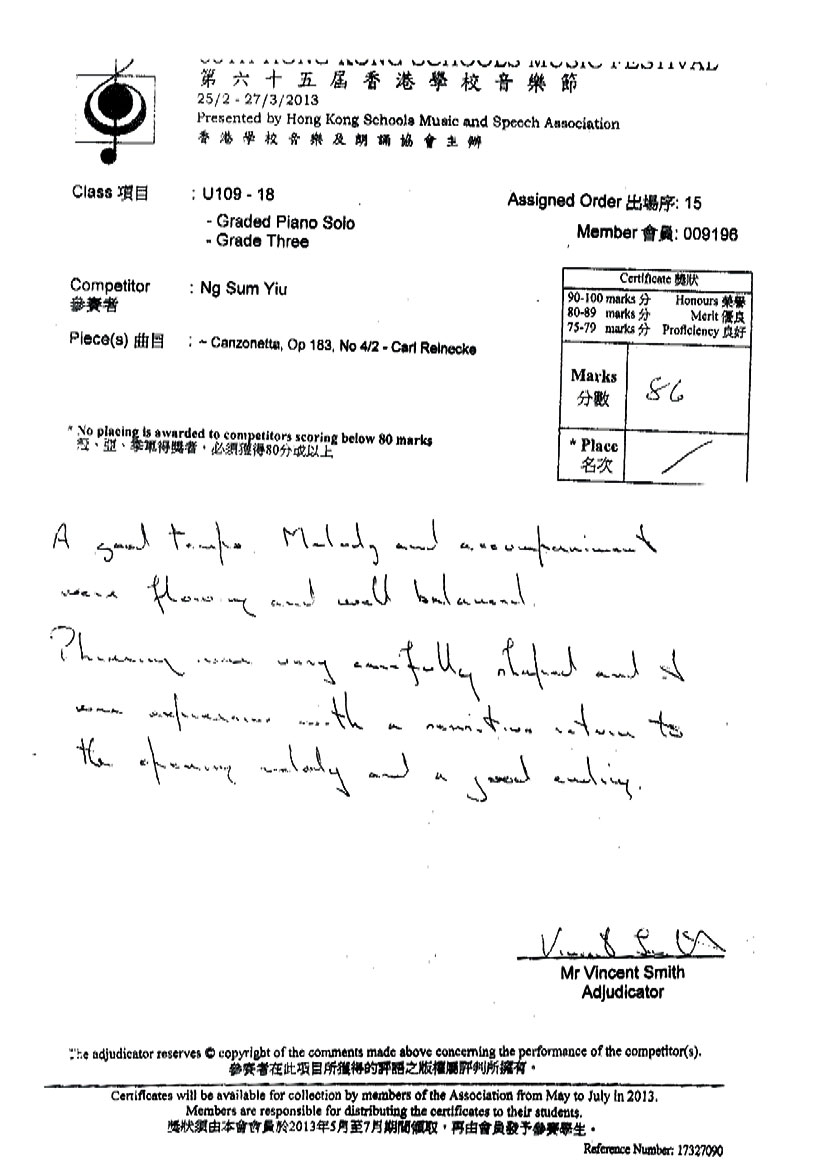 65TH HONG KONG SCHOOLS MUSIC FESTIVAL
第六十五屆香港學校音樂節
25/2 - 27/3/2013
Presented by Hong Kong Schools Music and Speech Association
香港學校音樂及朗誦協會主辦
Class 項目 : U109 - 18
- Graded Piano Solo
- Grade Three
Assigned Order 出場序: 15
Member 會員: 009196
Competitor : Ng Sum Yiu
參賽者
Piece(s) 曲目 : ~ Canzonetta, Op 183, No 4/2 - Carl Reinecke
Certificate 獎狀
90-100 marks 分 Honours 榮譽
80-89 marks 分 Merit 優良
75-79 marks 分 Proficiency 良好
Marks 分數 86
* Place 名次 /
* No placing is awarded to competitors scoring below 80 marks
冠、亞、季軍得獎者，必須獲得80分或以上
A good tempo. Melody and accompaniment
were flowing and well balanced.
Phrasing was very carefully shaped and it
was expressive with a sensitive return to
the opening melody and a good ending.
Vincent Smith
Mr Vincent Smith
Adjudicator
The adjudicator reserves © copyright of the comments made above concerning the performance of the competitor(s).
參賽者在此項目所獲得的評語之版權屬評判所擁有。
Certificates will be available for collection by members of the Association from May to July in 2013.
Members are responsible for distributing the certificates to their students.
獎狀須由本會會員於2013年5月至7月期間領取，再由會員發予參賽學生。
Reference Number: 17327090